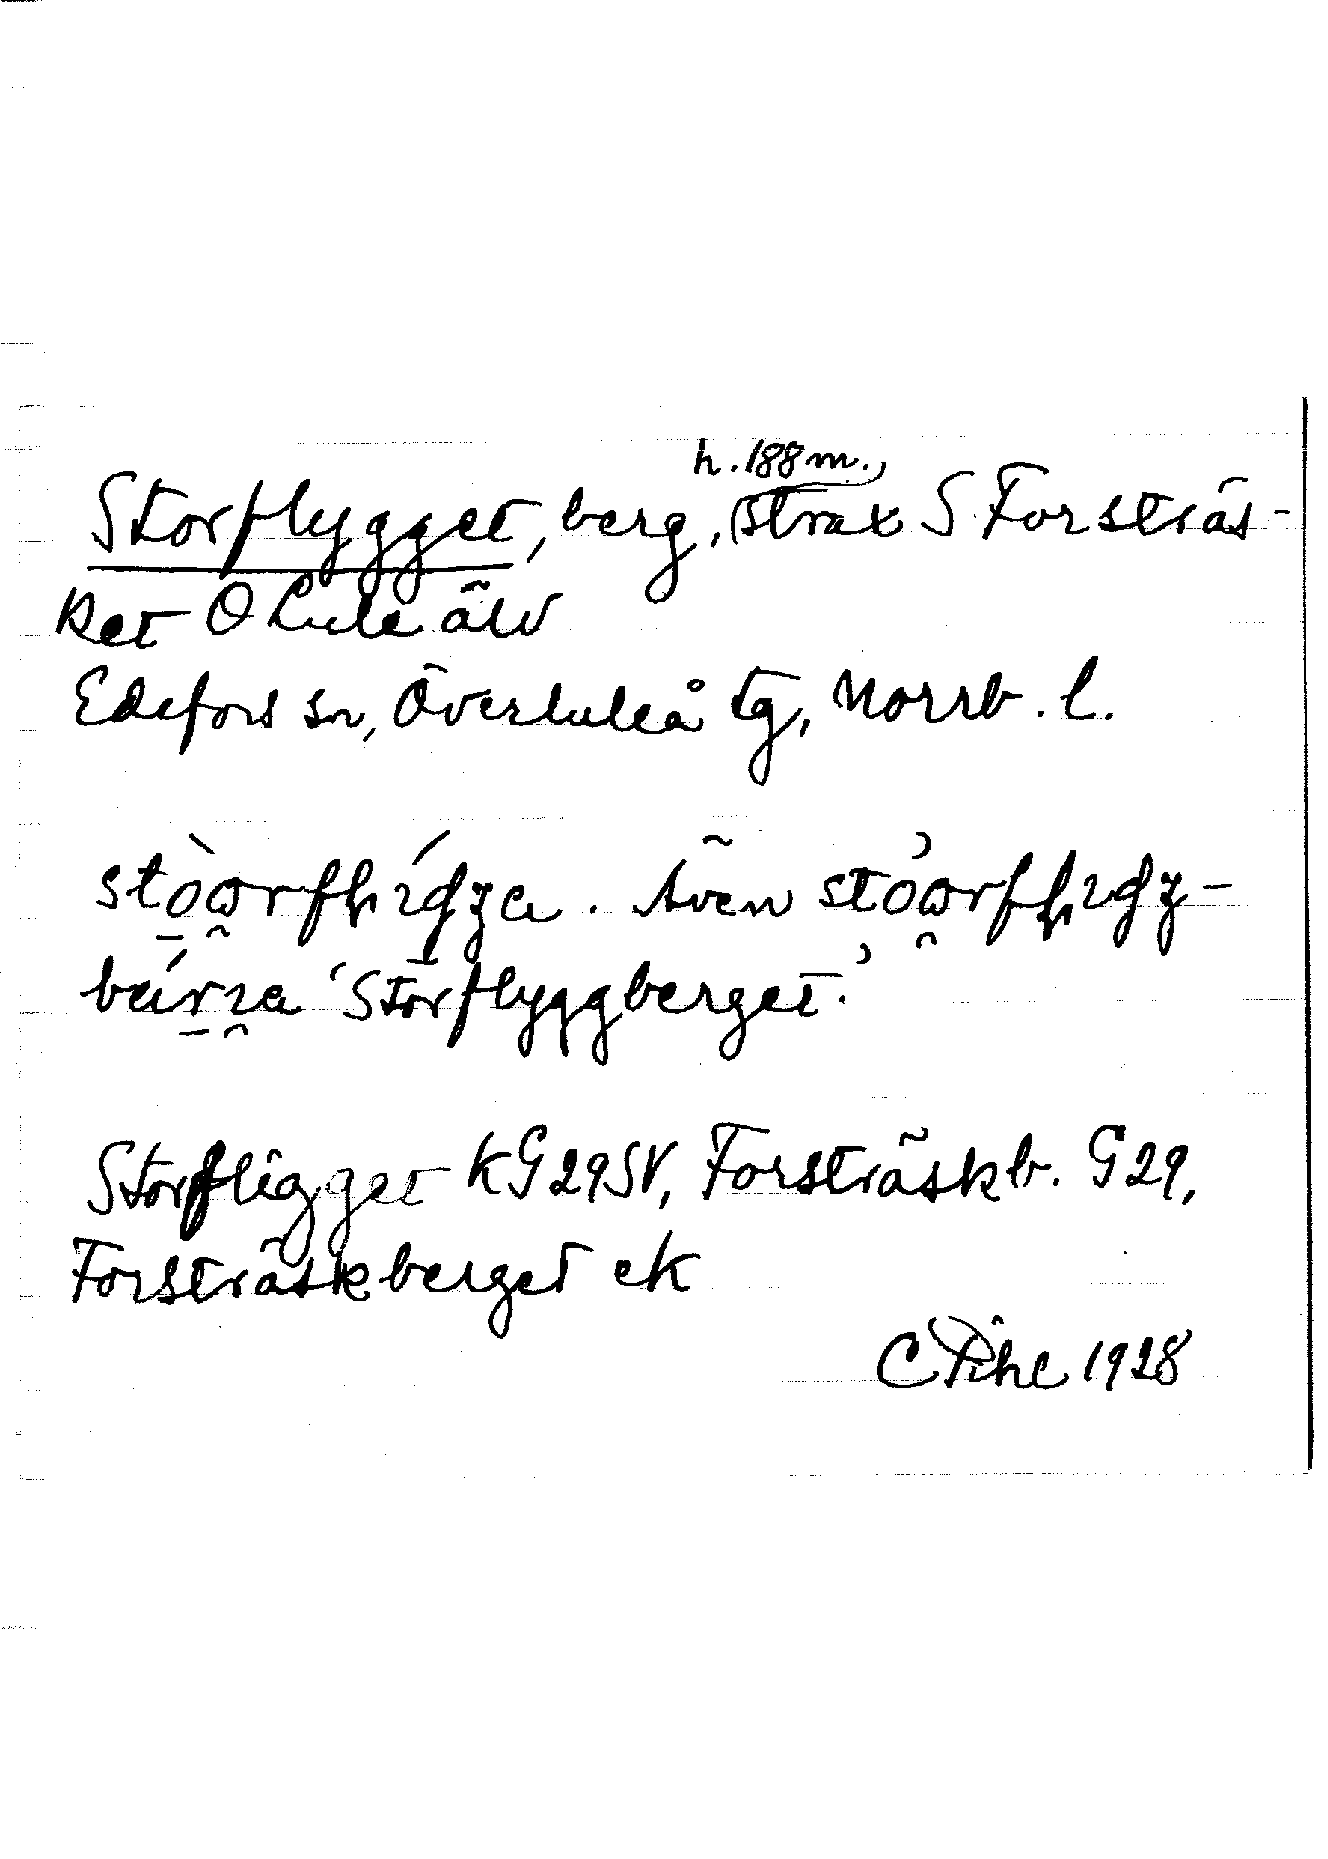 h. 188 m.,
Storflygget, berg, strax S Forsträs-
ket O Lule älv
Edefors sn, Överluleå tg, Norrb. l.
Även
'Storflyggberget.'
Storfligget KG29SV, Forsträskb. G29,
Forsträskberget ek
C Pihl 1928